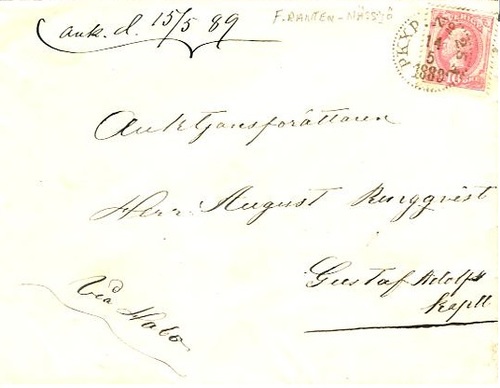 ank. d. 15/5 89
F. RANTEN-NÄSSJÖ
PKXP
14
5
1889
Auktionsförrättaren
Herr August Rungqvist
Gustaf Adolfs
Kapell
Via Habo